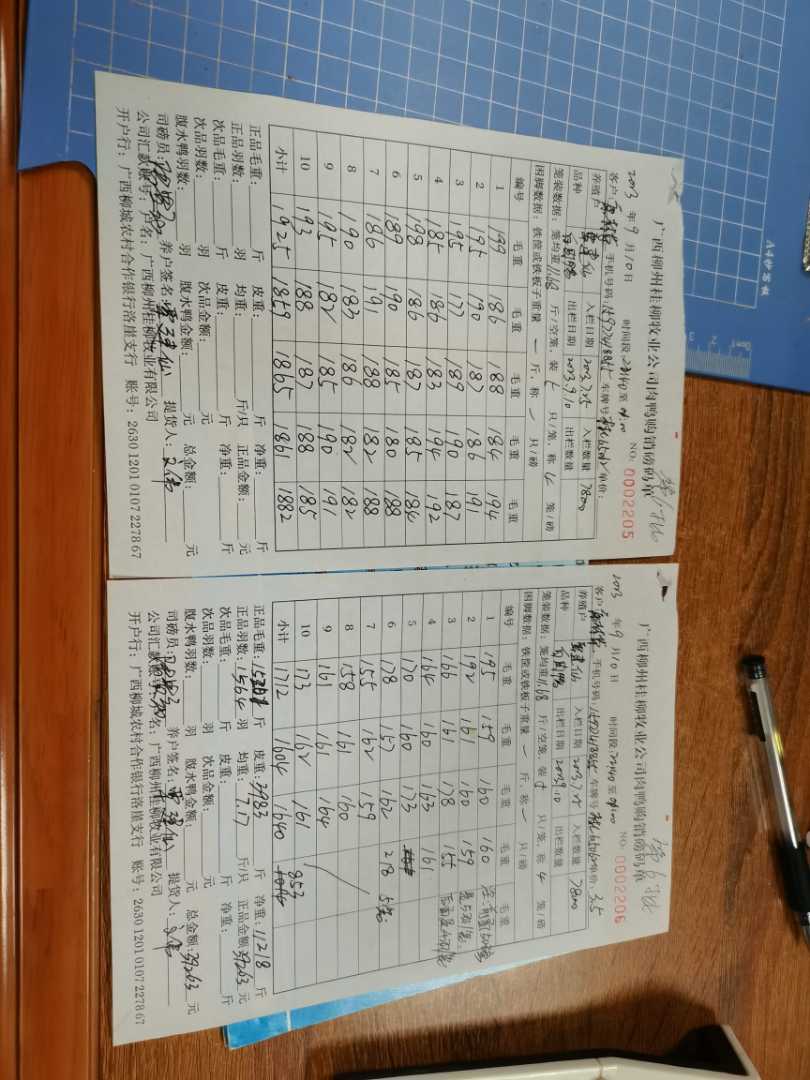 广西柳州桂柳牧业公司肉鸭购销磅码单
第6批
NO: 0002205
2023 年 9 月 10 日 时间段: 22:40 至 01:00
客户 手机号码: 车牌号 单价:
养殖户 入栏日期 2023.7.25 入栏数量 78000
品种 出栏日期 2023.9.10 出栏数量
笼装数据: 笼均重 11.68 斤/空笼, 装 5 只/笼, 称 4 笼/磅
困脚数据: 铁筐或铁板子重量 一 斤, 称 只/磅
编号 毛重 毛重 毛重 毛重 毛重
1 199 186 188 184 194
2 195 190 187 186 191
3 195 177 189 190 187
4 185 186 183 194 192
5 198 186 187 185 184
6 189 190 185 180 188
7 186 191 188 182 188
8 190 183 186 182 182
9 195 182 185 190 191
10 193 188 187 188 185
小计 1925 1859 1865 1861 1882
正品毛重: 斤 皮重: 斤 净重: 斤
正品羽数: 羽 均重: 斤/只 正品金额: 元
次品毛重: 斤 皮重: 斤 净重: 斤
次品羽数: 羽 次品金额: 元
腹水鸭羽数: 羽 腹水鸭金额: 元 总金额: 元
司磅员: 养户签名: 提货人:
公司汇款账号: 户名: 广西柳州桂柳牧业有限公司
开户行: 广西柳城农村合作银行洛崖支行 账号: 2630 1201 0107 2278 67
广西柳州桂柳牧业公司肉鸭购销磅码单
第6批
NO: 0002206
2023 年 9 月 10 日 时间段: 22:40 至 01:00
客户 手机号码: 车牌号 单价: 3.5
养殖户 入栏日期 2023.7.25 入栏数量 78000
品种 出栏日期 2023.9.10 出栏数量
笼装数据: 笼均重 11.68 斤/空笼, 装 只/笼, 称 4 笼/磅
困脚数据: 铁筐或铁板子重量 一 斤, 称 只/磅
编号 毛重 毛重 毛重 毛重 毛重
1 195 159 160 160
2 192 161 160 159
3 166 161 178 155
4 164 160 163 161
5 170 160 173
6 178 157 162 218 5笼
7 155 162 159
8 158 161 160
9 161 161 164
10 173 162 161
小计 1712 1604 1640 853
正品毛重: 斤 皮重: 3983 斤 净重: 11218 斤
正品羽数: 1564 羽 均重: 7.17 斤/只 正品金额: 39263 元
次品毛重: 斤 皮重: 斤 净重: 斤
次品羽数: 羽 次品金额: 元
腹水鸭羽数: 羽 腹水鸭金额: 元 总金额: 39263 元
司磅员: 养户签名: 提货人:
公司汇款账号: 户名: 广西柳州桂柳牧业有限公司
开户行: 广西柳城农村合作银行洛崖支行 账号: 2630 1201 0107 2278 67
A4